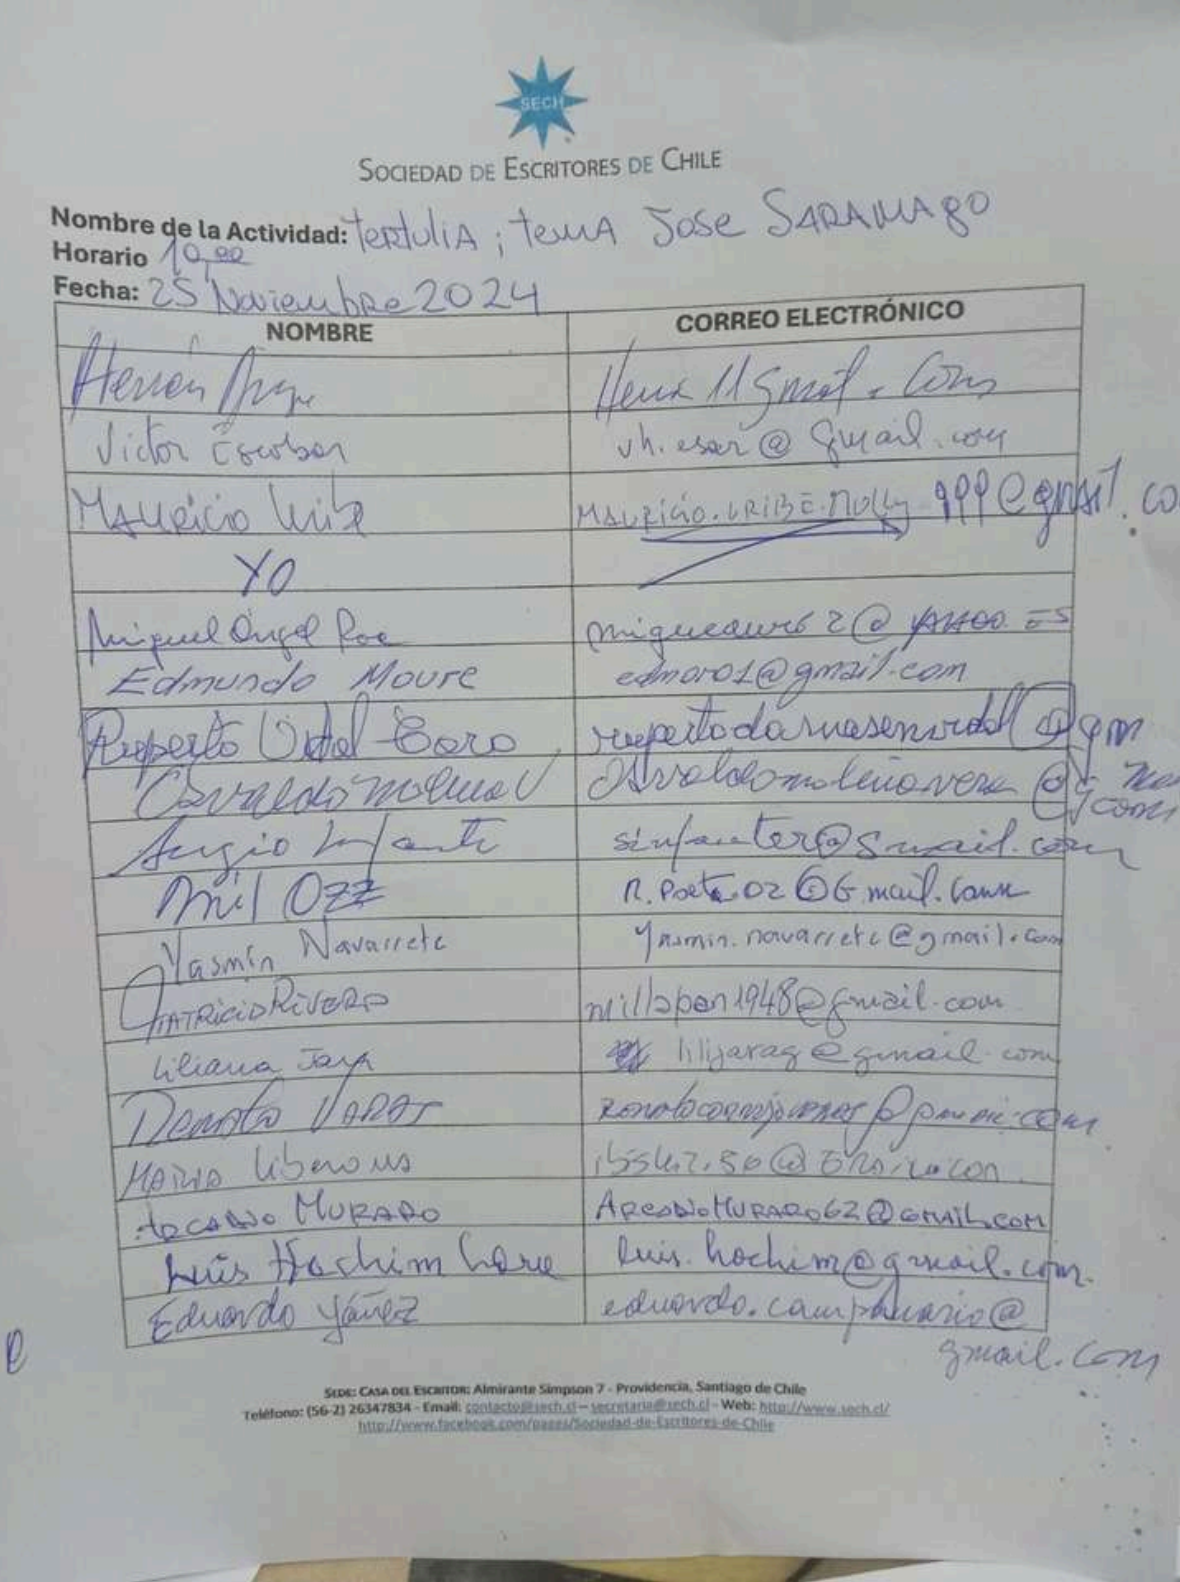 SECH
SOCIEDAD DE ESCRITORES DE CHILE
Nombre de la Actividad: Tertulia; tema Jose SARAMAGO
Horario 19,00
Fecha: 25 Noviembre 2024
NOMBRE CORREO ELECTRÓNICO
Hernán
Victor Escobar vh.esar@gmail.com
MAURICIO
YO
Miguel Angel Roe @YAHOO.ES
Edmundo Moure edmoro1@gmail.com
Ruperto Vidal
Osvaldo Molina V
Sergio Infante sinfanter@gmail.com
Mil Ozz R.Poeta02@Gmail.com
Yasmín Navarrete Yasmin.navarrete@gmail.com
PATRICIO RIVERA millapan1948@gmail.com
Liliana Jara lilijarag@gmail.com
MARIA
Arcadio MURARO ArcadioMURARO62@GMAIL.COM
Luis Hachim Lara luis.hachim@gmail.com.
Eduardo Yáñez eduardo.campanario@
gmail.com
e
SEDE: CASA DEL ESCRITOR: Almirante Simpson 7 - Providencia, Santiago de Chile
Teléfono: (56-2) 26347834 - Email: contacto@sech.cl – secretaria@sech.cl - Web: http://www.sech.cl/
http://www.facebook.com/pages/Sociedad-de-Escritores-de-Chile